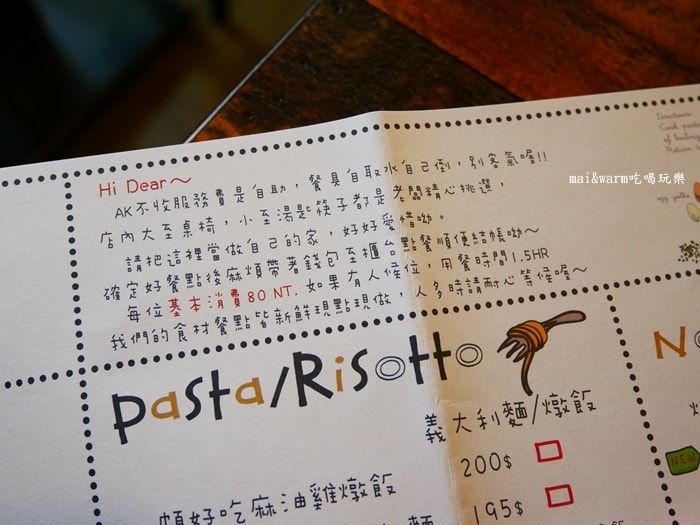 Hi Dear～
AK不收服務費是自助，餐具自取水自己倒，別客氣喔!!
店內大至桌椅，小至湯匙筷子都是老闆精心挑選，
請把這裡當做自己的家，好好愛惜呦。
確定好餐點後麻煩帶著錢包至櫃台點餐順便結帳呦～
每位基本消費80 NT. 如果有人候位，用餐時間1.5HR
我們的食材餐點皆新鮮現點現做，人多時請耐心等候喔～
mai&warm吃喝玩樂
Directions:
Cook pasta
of boiling
egg yolks
Pasta/Risotto
義大利麵/燉飯
200$
頗好吃麻油雞燉飯
195$
麵
N
NEW